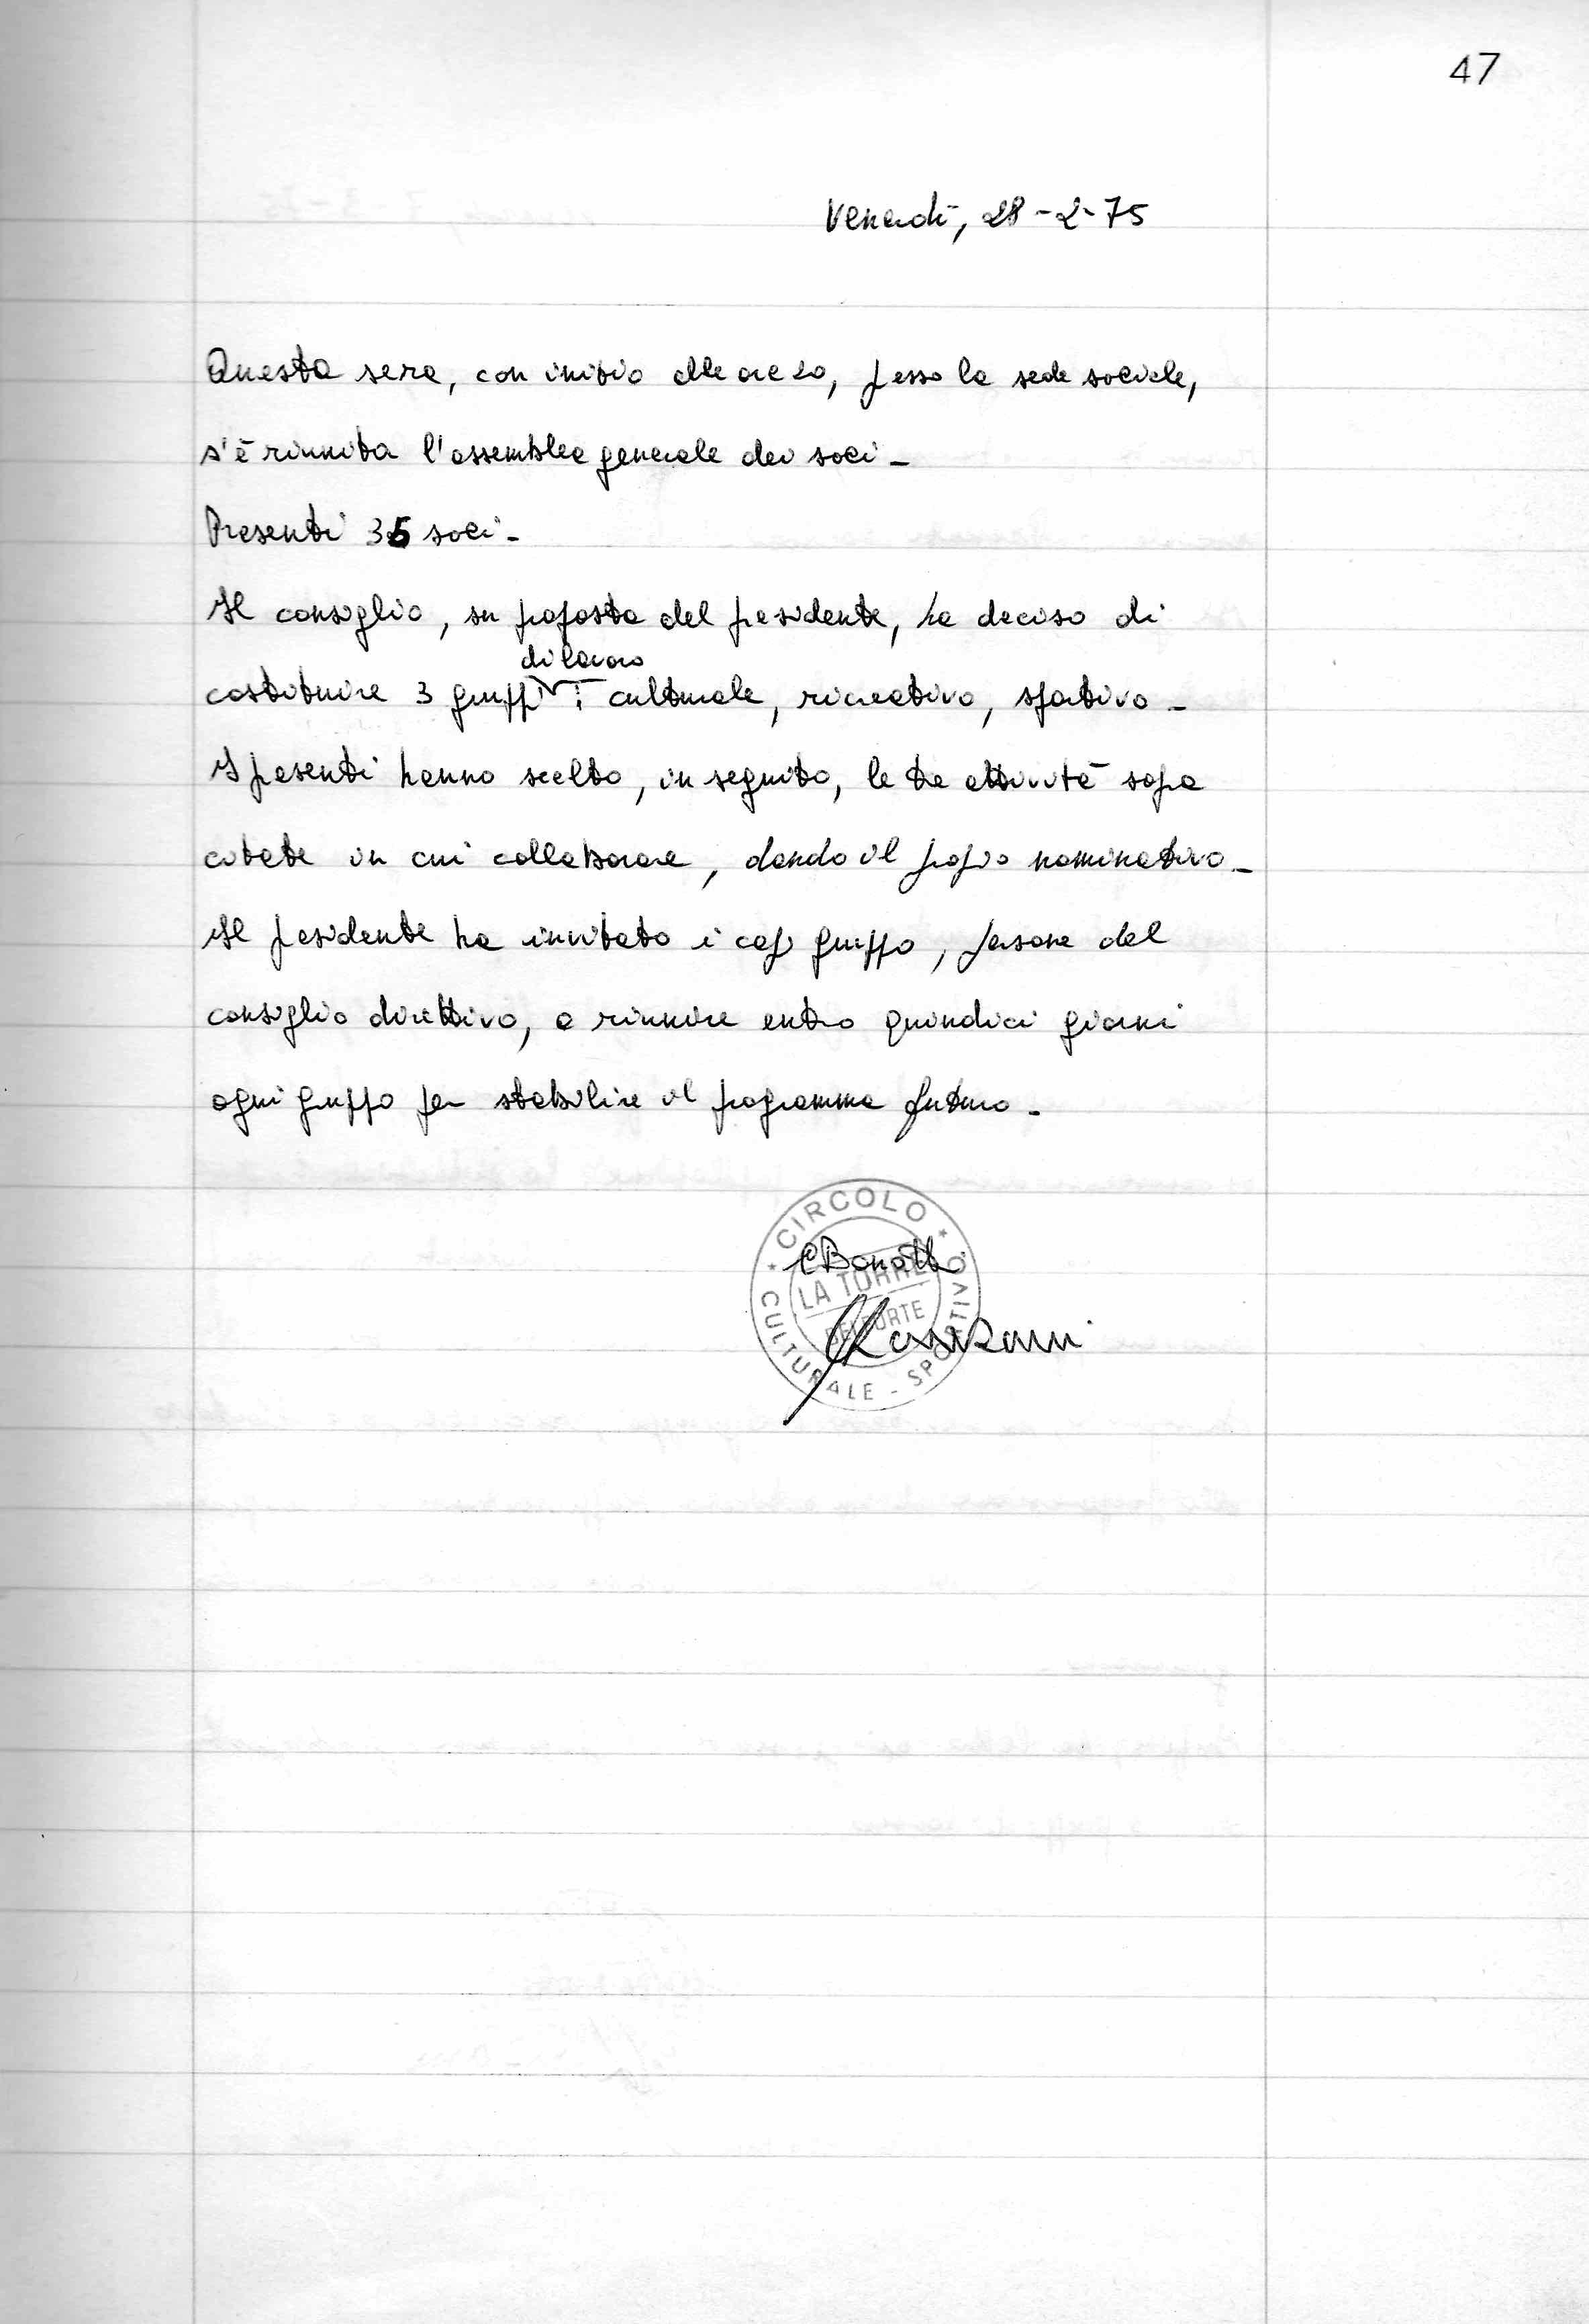 47
Venerdì, 28-2-75
Questa sera, con inizio alle ore 20, presso la sede sociale,
s'è riunita l'assemblea generale dei soci -
Presenti 35 soci -
Il consiglio, su proposta del presidente, ha deciso di
di lavoro
costituire 3 gruppi : culturale, ricreativo, sportivo -
I presenti hanno scelto, in seguito, le tre attività sopra
citate in cui collaborare, dando il proprio nominativo -
Il presidente ha invitato i capi gruppo, persone del
consiglio direttivo, a riunire entro quindici giorni
ogni gruppo per stabilire il programma futuro -
CIRCOLO
LA TORRE
BELFORTE
CULTURALE - SPORTIVO